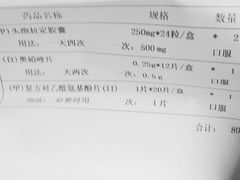 药品名称 规格 数量
(甲)头孢拉定胶囊 250mg*24粒/盒 * 2
用法: 一天四次 一次: 500mg 口服
(自)奥硝唑片 0.25g*12片/盒 *
用法: 一天两次 一次: 0.5g 口服
(甲)复方对乙酰氨基酚片(II) 1片*20片/盒 *
用法: 必要时用 一次: 1片 口服
合计: 80